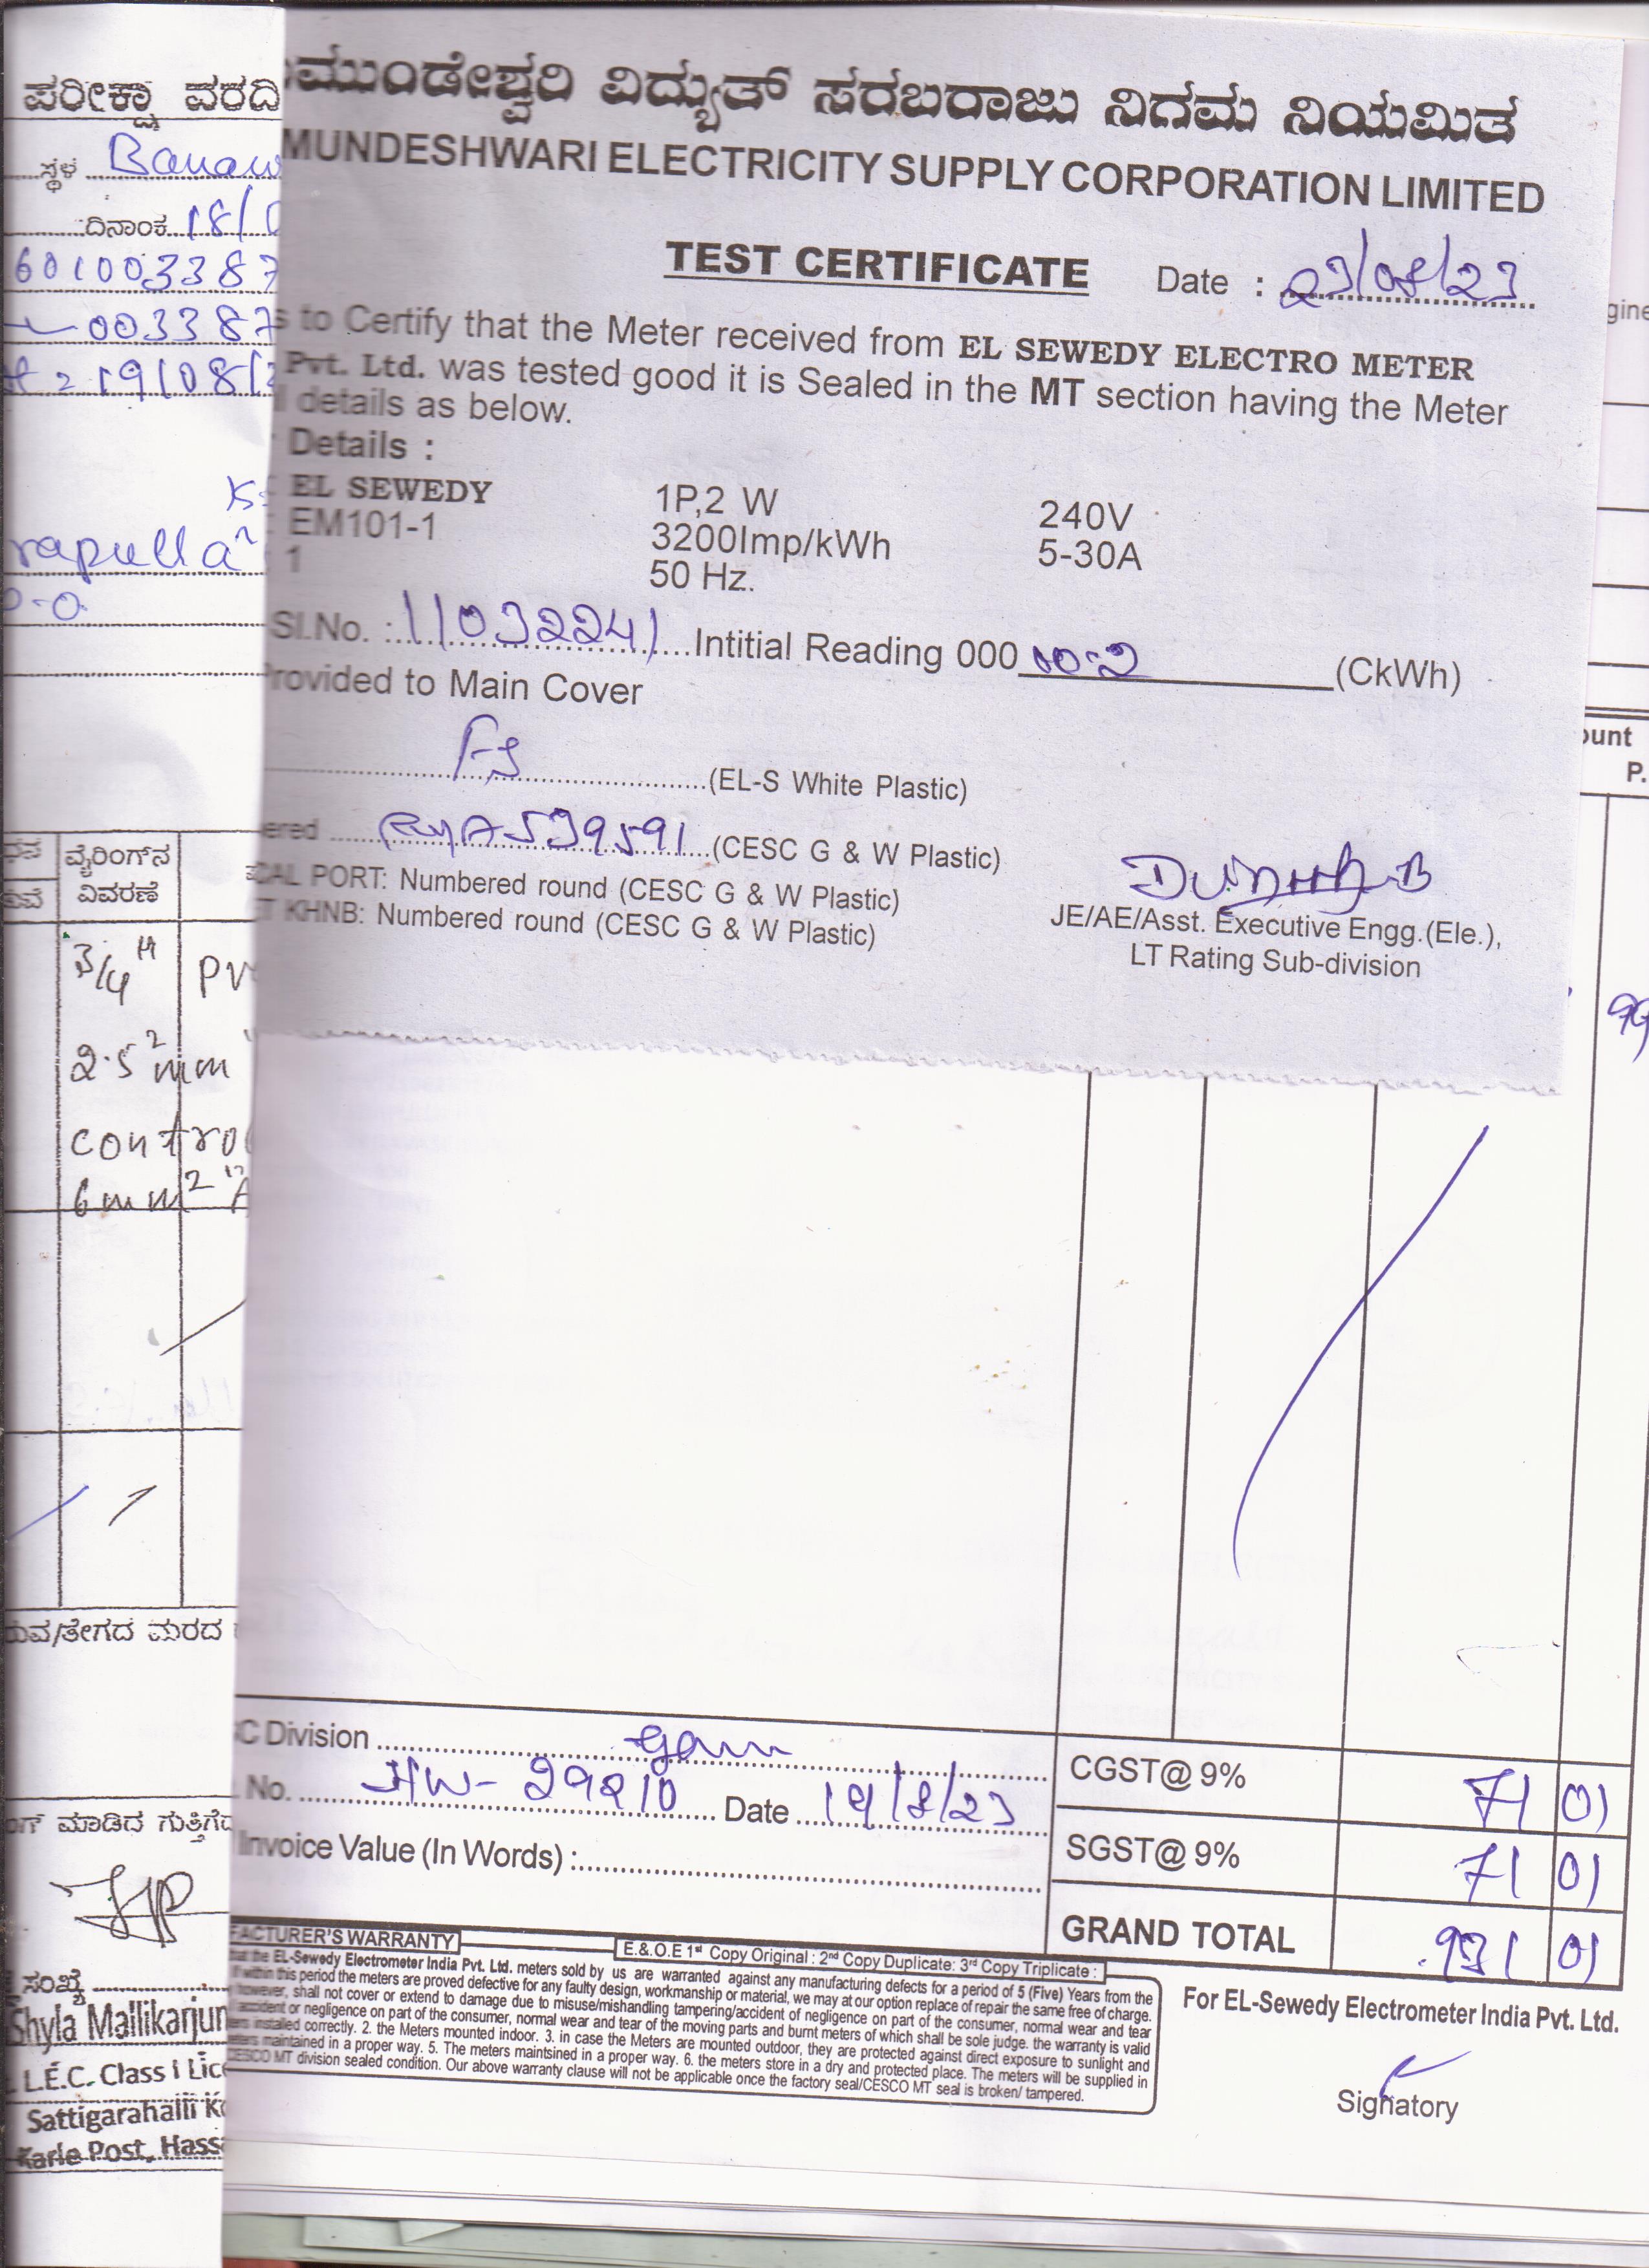 ಪರೀಕ್ಷಾ ವರದಿ
ಸ್ಥಳ
ದಿನಾಂಕ 18/
6010033387
003387
19/08/
rapulla
ವೈರಿಂಗ್‌ನ
ವಿವರಣೆ
3/4"
2.5 mm²
6mm²
ಮರದ
ಮಾಡಿದ
ಸಂಖ್ಯೆ
Shyla Mallikarjun
L.E.C. Class I Lice
Sattigarahalli K
Karle Post, Hass
ಮುಂಡೇಶ್ವರಿ ವಿದ್ಯುತ್ ಸರಬರಾಜು ನಿಗಮ ನಿಯಮಿತ
MUNDESHWARI ELECTRICITY SUPPLY CORPORATION LIMITED
TEST CERTIFICATE Date : 23/08/23
s to Certify that the Meter received from EL SEWEDY ELECTRO METER
Pvt. Ltd. was tested good it is Sealed in the MT section having the Meter
l details as below.
Details :
EL SEWEDY 1P,2 W 240V
EM101-1 3200Imp/kWh 5-30A
1 50 Hz.
Sl.No. : 11032241 Intitial Reading 000 00.2 (CkWh)
rovided to Main Cover
(EL-S White Plastic)
ered A539591 (CESC G & W Plastic)
CAL PORT: Numbered round (CESC G & W Plastic)
T KHNB: Numbered round (CESC G & W Plastic)
JE/AE/Asst. Executive Engg.(Ele.),
LT Rating Sub-division
ount
P.
C Division
No. 29210 Date 19/8/23
Invoice Value (In Words) :
CGST@ 9% 71 01
SGST@ 9% 71 01
GRAND TOTAL 931 01
FACTURER'S WARRANTY
E.&.O.E 1st Copy Original : 2nd Copy Duplicate: 3rd Copy Triplicate :
that the EL-Sewedy Electrometer India Pvt. Ltd. meters sold by us are warranted against any manufacturing defects for a period of 5 (Five) Years from the
If within this period the meters are proved defective for any faulty design, workmanship or material, we may at our option replace of repair the same free of charge.
however, shall not cover or extend to damage due to misuse/mishandling tampering/accident of negligence on part of the consumer, normal wear and tear
accident or negligence on part of the consumer, normal wear and tear of the moving parts and burnt meters of which shall be sole judge. the warranty is valid
ers installed correctly. 2. the Meters mounted indoor. 3. in case the Meters are mounted outdoor, they are protected against direct exposure to sunlight and
eters maintained in a proper way. 5. The meters maintsined in a proper way. 6. the meters store in a dry and protected place. The meters will be supplied in
CESCO MT division sealed condition. Our above warranty clause will not be applicable once the factory seal/CESCO MT seal is broken/ tampered.
For EL-Sewedy Electrometer India Pvt. Ltd.
Signatory